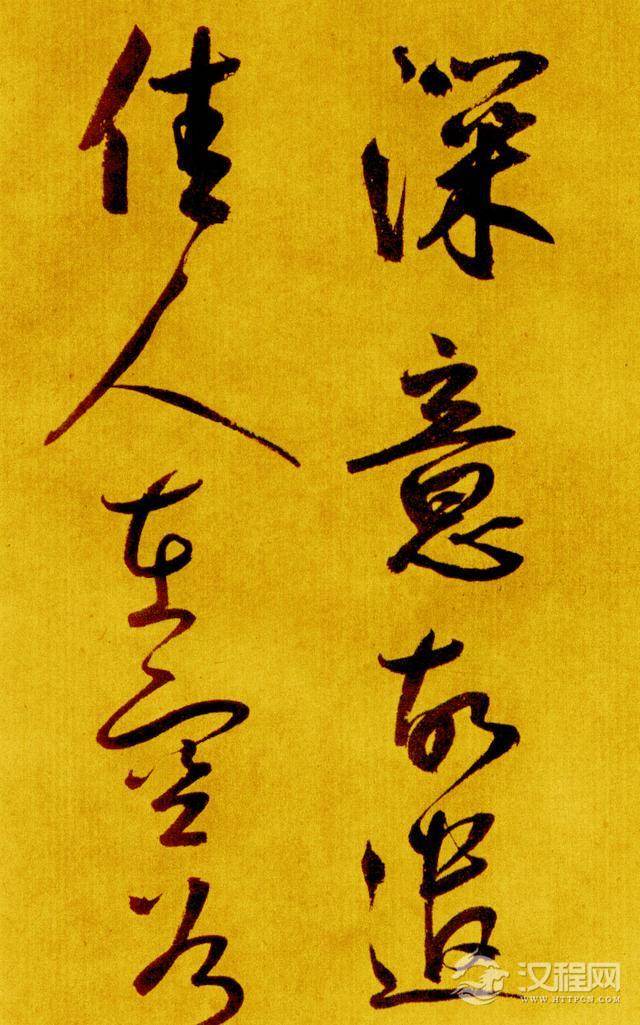 深意故遣
佳人在空谷
汉程网
WWW.HTTPCN.COM